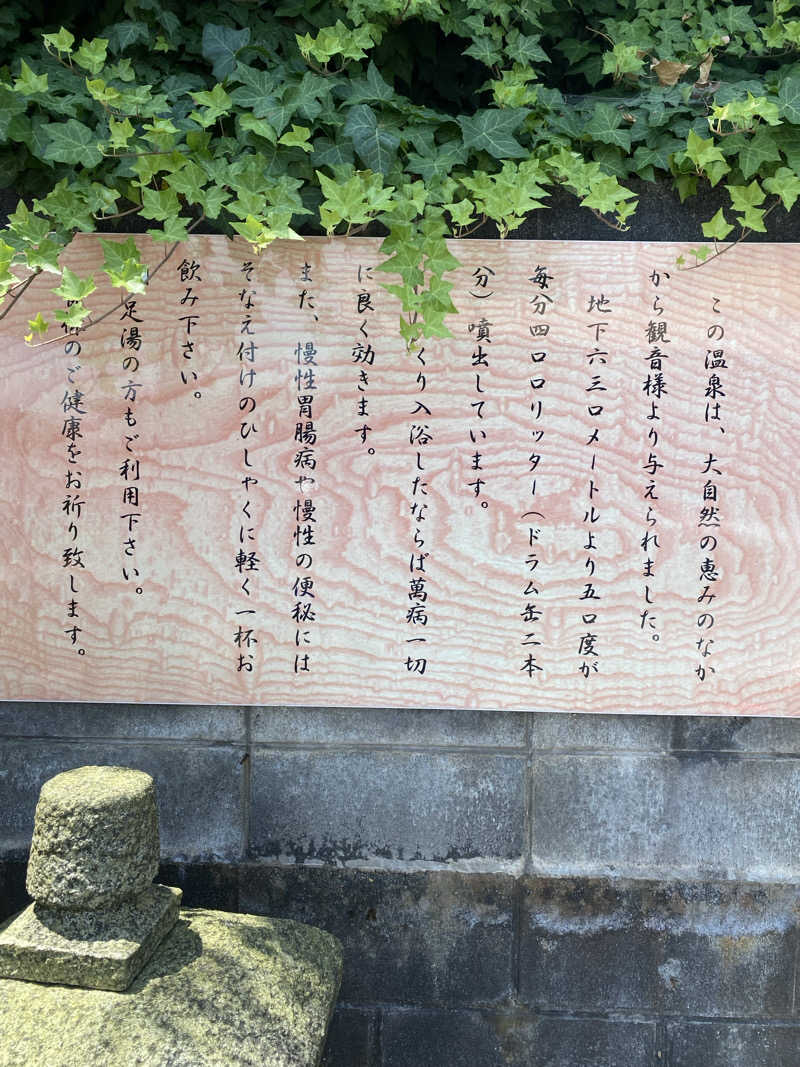 この温泉は、大自然の恵みのなか
から観音様より与えられました。
地下六三〇メートルより五〇度が
毎分四〇〇リッター（ドラム缶二本
分）噴出しています。
くり入浴したならば萬病一切
に良く効きます。
また、慢性胃腸病や慢性の便秘には
そなえ付けのひしゃくに軽く一杯お
飲み下さい。
足湯の方もご利用下さい。
のご健康をお祈り致します。